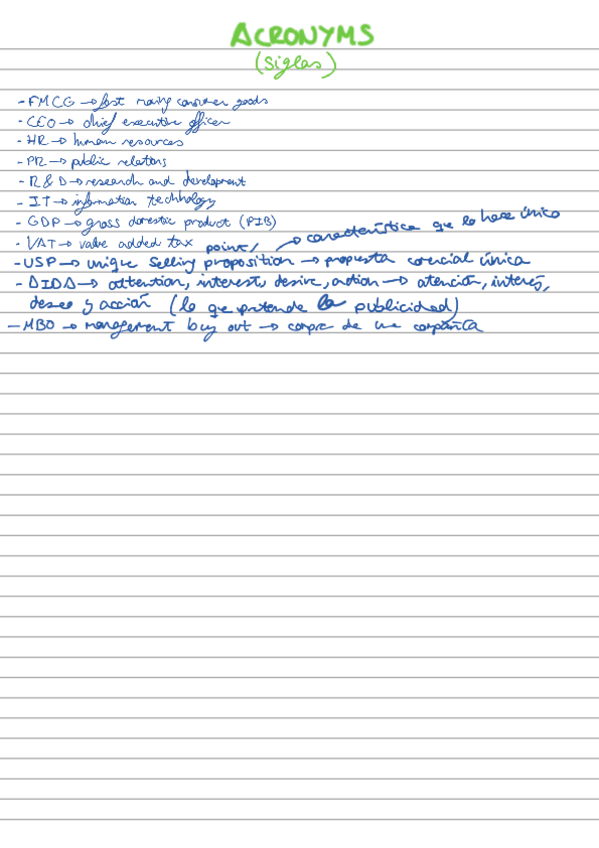 ACRONYMS
(siglas)
- FMCG → fast moving consumer goods
- CEO → chief executive officer
- HR → human resources
- PR → public relations
- R & D → research and development
- IT → information technology
- GDP → gross domestic product (PIB)
- VAT → value added tax
point/ → característica que lo hace único
- USP → unique selling proposition → propuesta comercial única
- AIDA → attention, interest, desire, action → atención, interés,
deseo y acción (lo que pretende la publicidad)
- MBO → management buy out → compra de una compañía